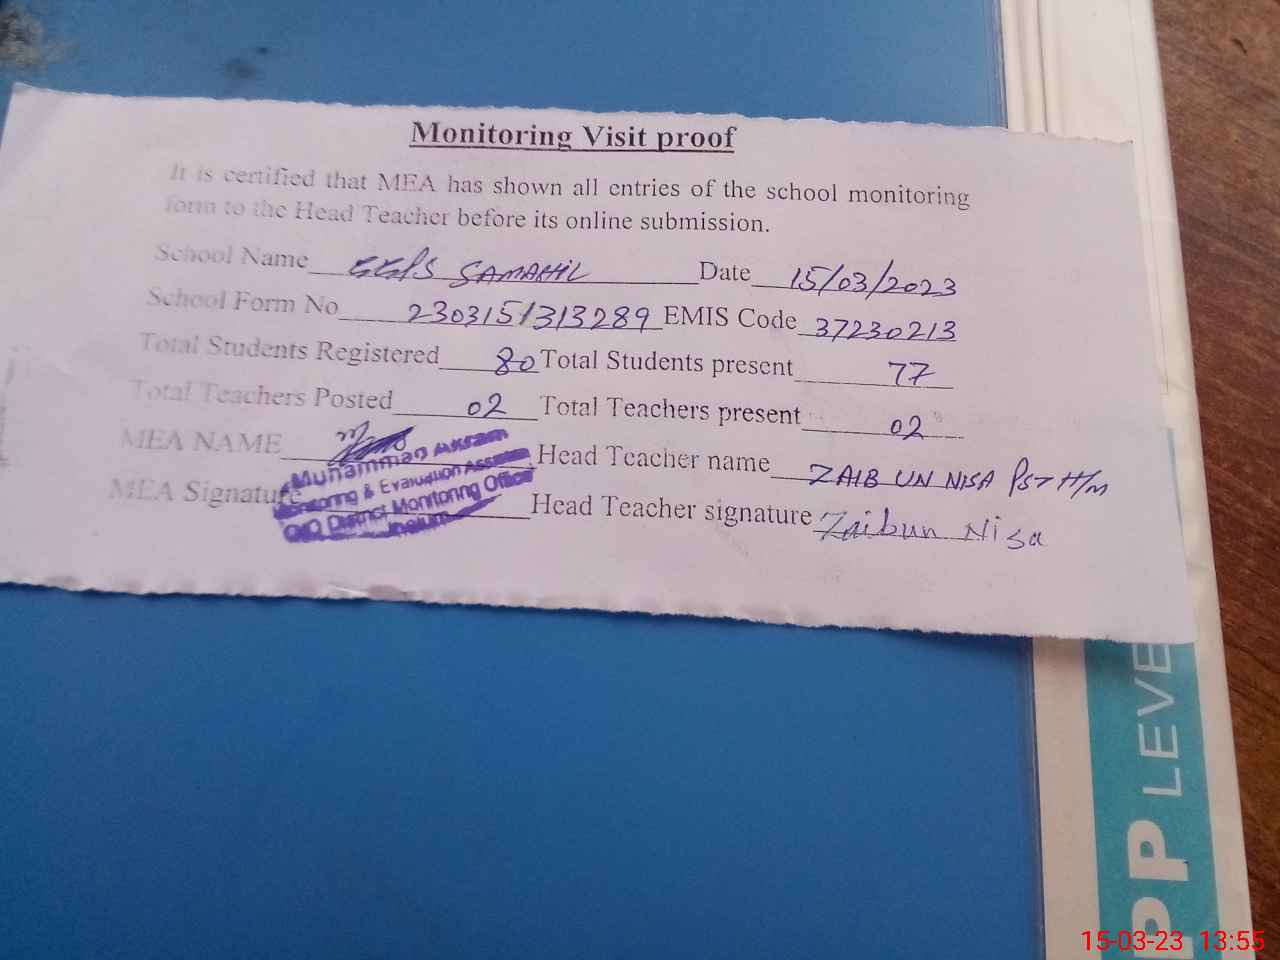 Monitoring Visit proof
It is certified that MEA has shown all entries of the school monitoring
form to the Head Teacher before its online submission.
School Name GGPS SAMAHIL Date 15/03/2023
School Form No 230315/313289 EMIS Code 37230213
Total Students Registered 80 Total Students present 77
Total Teachers Posted 02 Total Teachers present 02
MEA NAME Head Teacher name ZAIB UN NISA PST H/M
MEA Signature Head Teacher signature Zaibun Nisa
Muhammad Akram
Monitoring & Evaluation Assistant
O/O District Monitoring Officer
Jhelum
PP LEVE
15-03-23 13:55